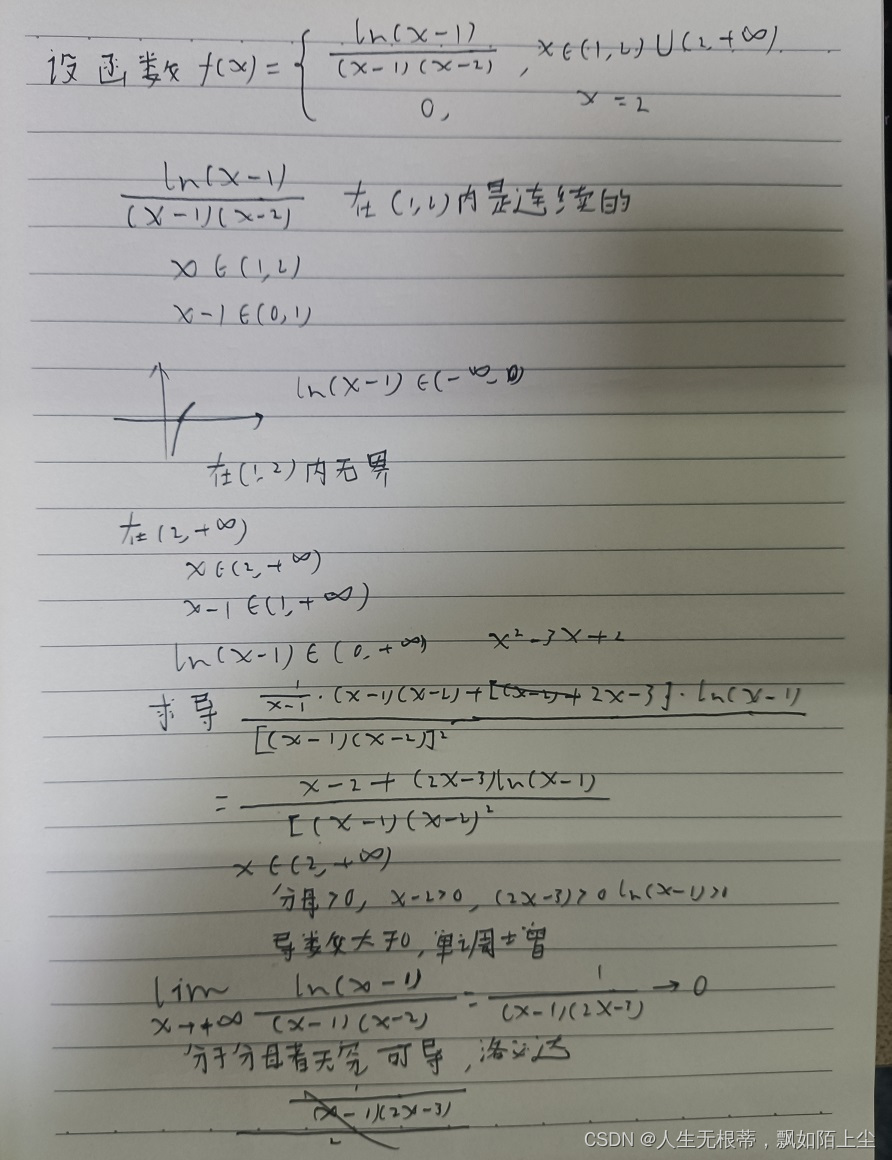 设函数 f(x) = { ln(x-1) / (x-1)(x-2) , x∈(1,2)∪(2,+∞)
0, x=2
ln(x-1) / (x-1)(x-2) 在(1,2)内是连续的
x∈(1,2)
x-1∈(0,1)
ln(x-1)∈(-∞,0)
在(1,2)内无界
在(2,+∞)
x∈(2,+∞)
x-1∈(1,+∞)
ln(x-1)∈(0,+∞) x²-3x+2
求导 1/(x-1)·(x-1)(x-2)+[(x-2)+2x-3]·ln(x-1) / [(x-1)(x-2)]²
= x-2+(2x-3)ln(x-1) / [(x-1)(x-2)²
x∈(2,+∞)
分母>0, x-2>0, (2x-3)>0 ln(x-1)>0
导数大于0,单调增
lim x→+∞ ln(x-1) / (x-1)(x-2) = 1 / (x-1)(2x-3) → 0
分子分母者无穷 可导,洛必达
1 / (x-1)(2x-3)
CSDN @人生无根蒂,飘如陌上尘